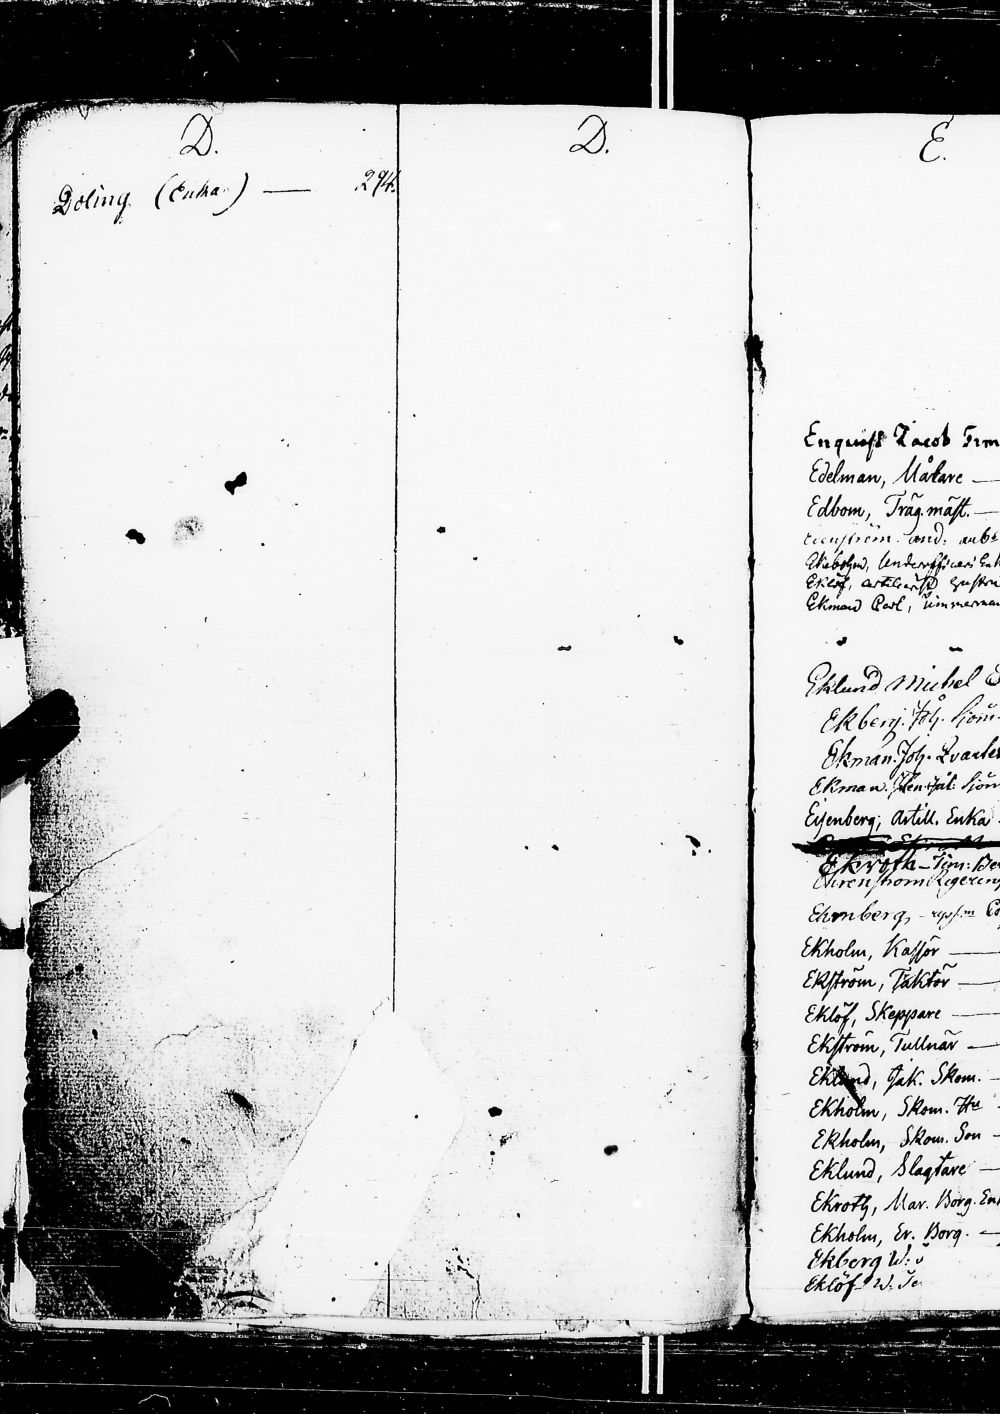 D.
Doling (Enka) — 294.
D.
E.
Enquist Jacob Tim
Edelman, Mätare —
Edbom, Trägmäst. —
and:
Underofficers Enk
Eklöf,
Ekman Carl, Timmerman
Eklund Michel
Ekberg. Joh. Sjöm.
Ekman. Joh.
Ekman. Sjöm
Eisenberg, Artill. Enka
Ekroth — Tim:
Ehrenström
Ehrnberg,
Ekholm, Kassör —
Ekström, Faktor —
Eklöf, Skeppare —
Ekström, Tullnär —
Eklund, Jak. Skom. —
Ekholm, Skom. Hu
Ekholm, Skom. Son —
Eklund, Slagtare —
Ekroth, Mar. Borg. Enk
Ekholm, Er. Borg. —
Ekberg W:
Eklöf W.